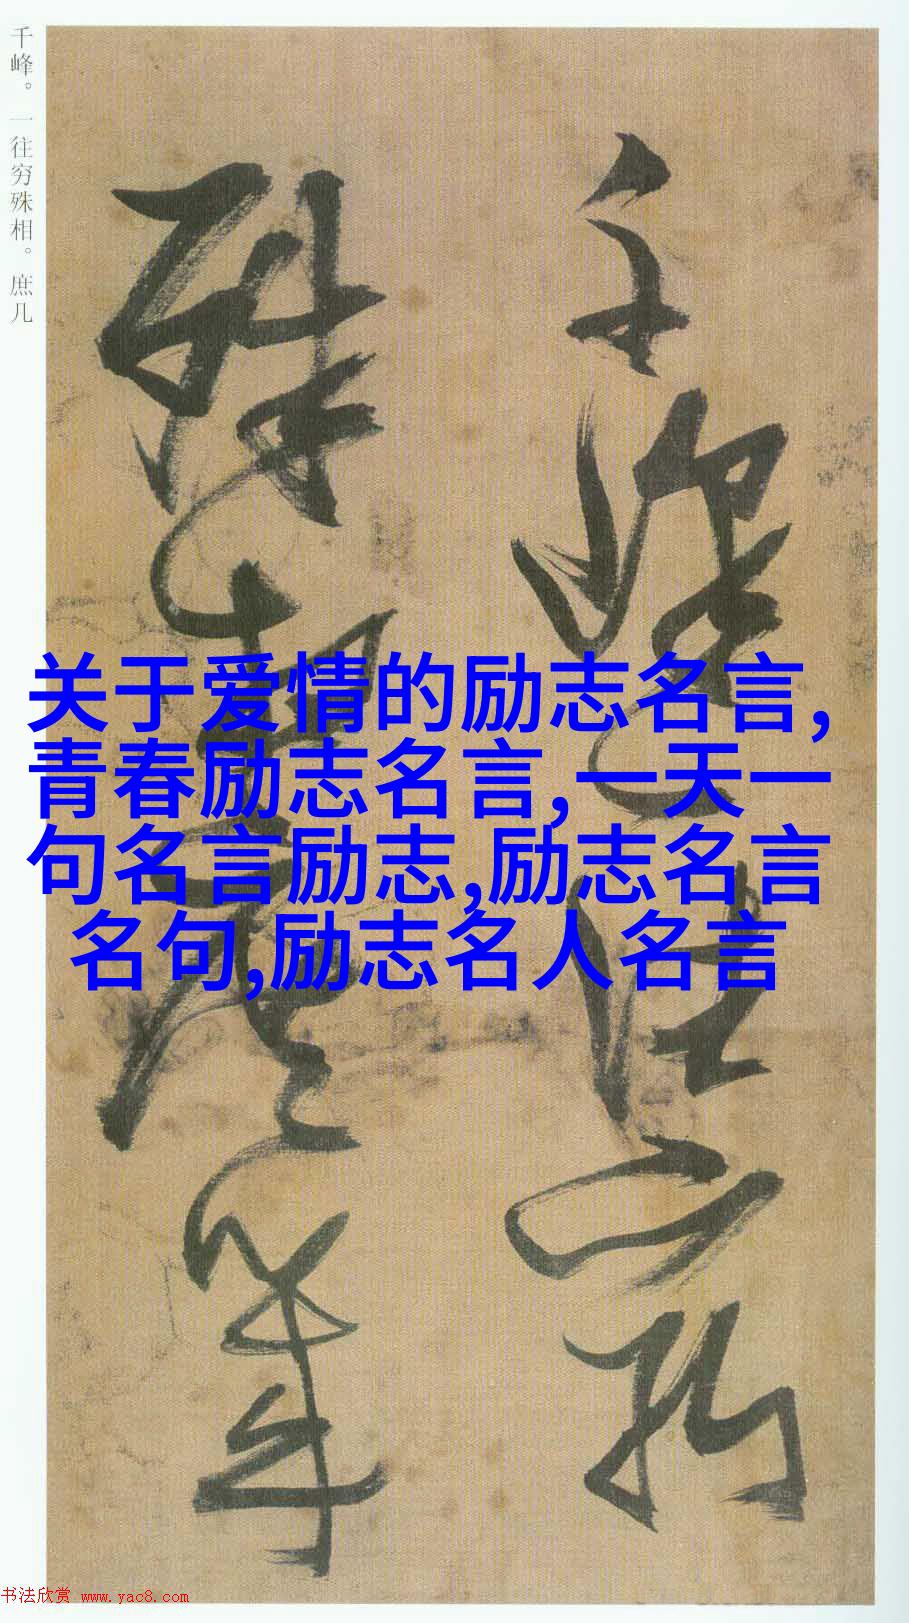 千峰。一往穷殊相。庶几
千峰一往窮
殊相庶幾
关于爱情的励志名言,
青春励志名言,一天一
句名言励志,励志名言
名句,励志名人名言
书法欣赏 www.yac8.com